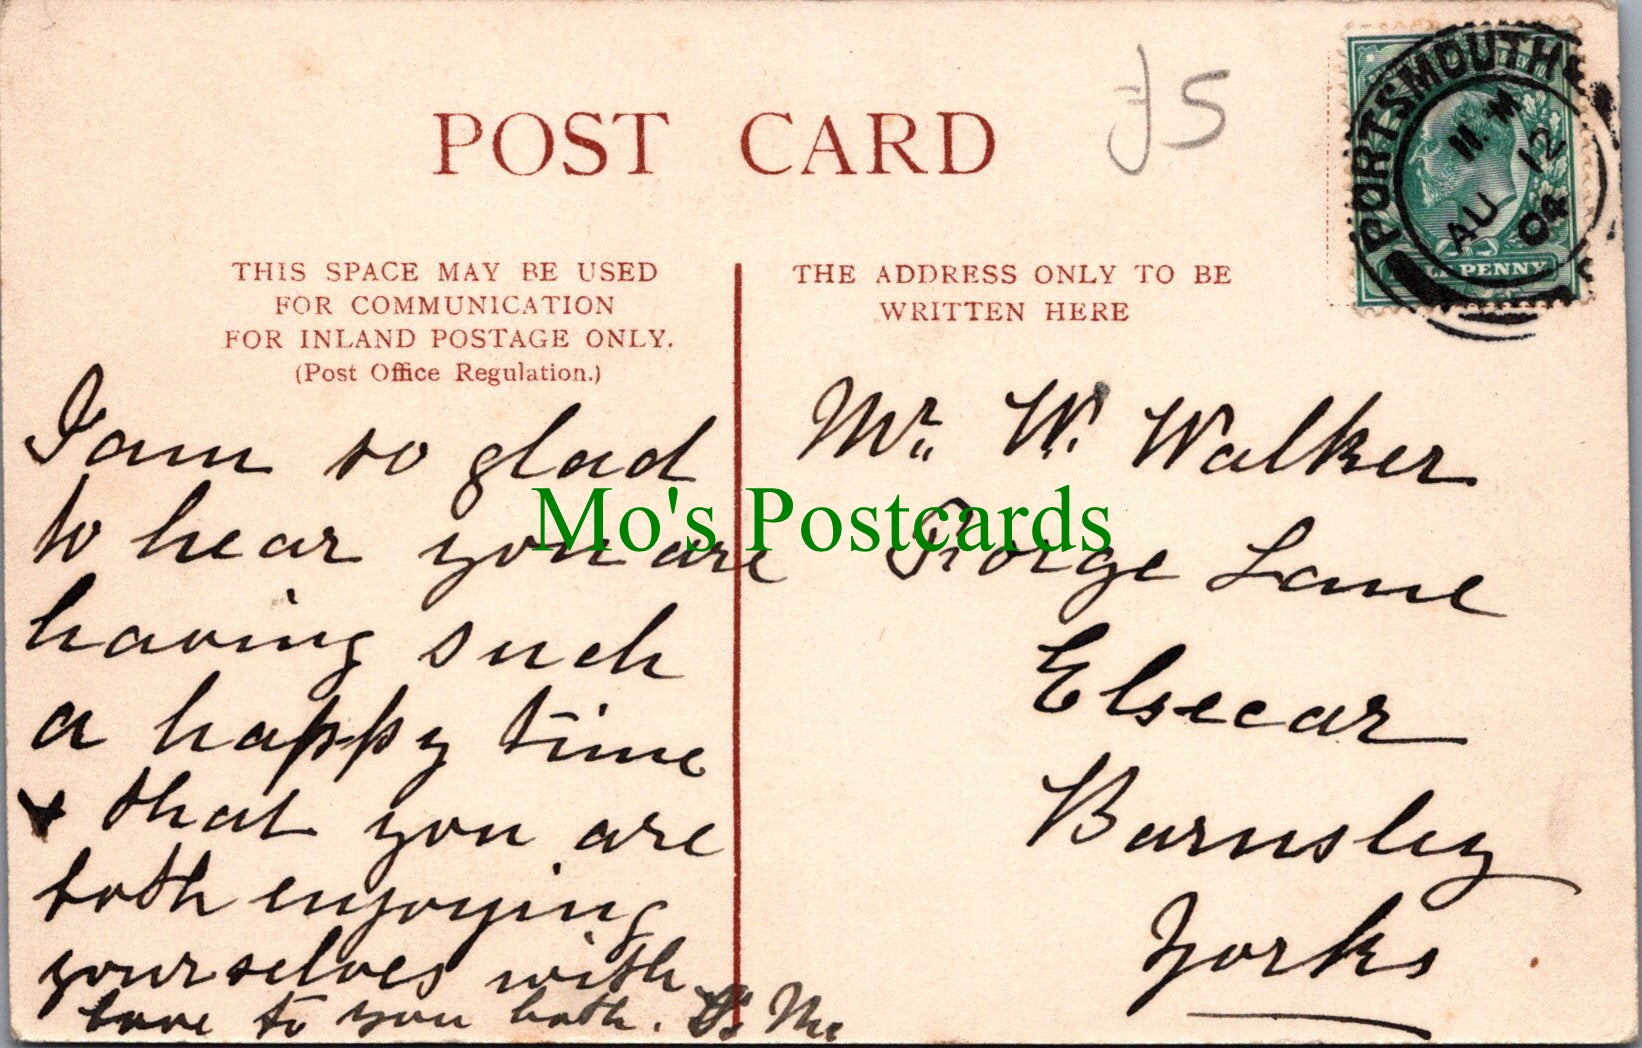 POST CARD
£5
PORTSMOUTH
11. M
AU 12
04
HALFPENNY
THIS SPACE MAY BE USED
FOR COMMUNICATION
FOR INLAND POSTAGE ONLY.
(Post Office Regulation.)
THE ADDRESS ONLY TO BE
WRITTEN HERE
I am so glad
to hear you are
having such
a happy time
& that you are
both enjoying
yourselves with
love to you both.
Mr. W. Walker
Forge Lane
Elsecar
Barnsley
Yorks
Mo's Postcards